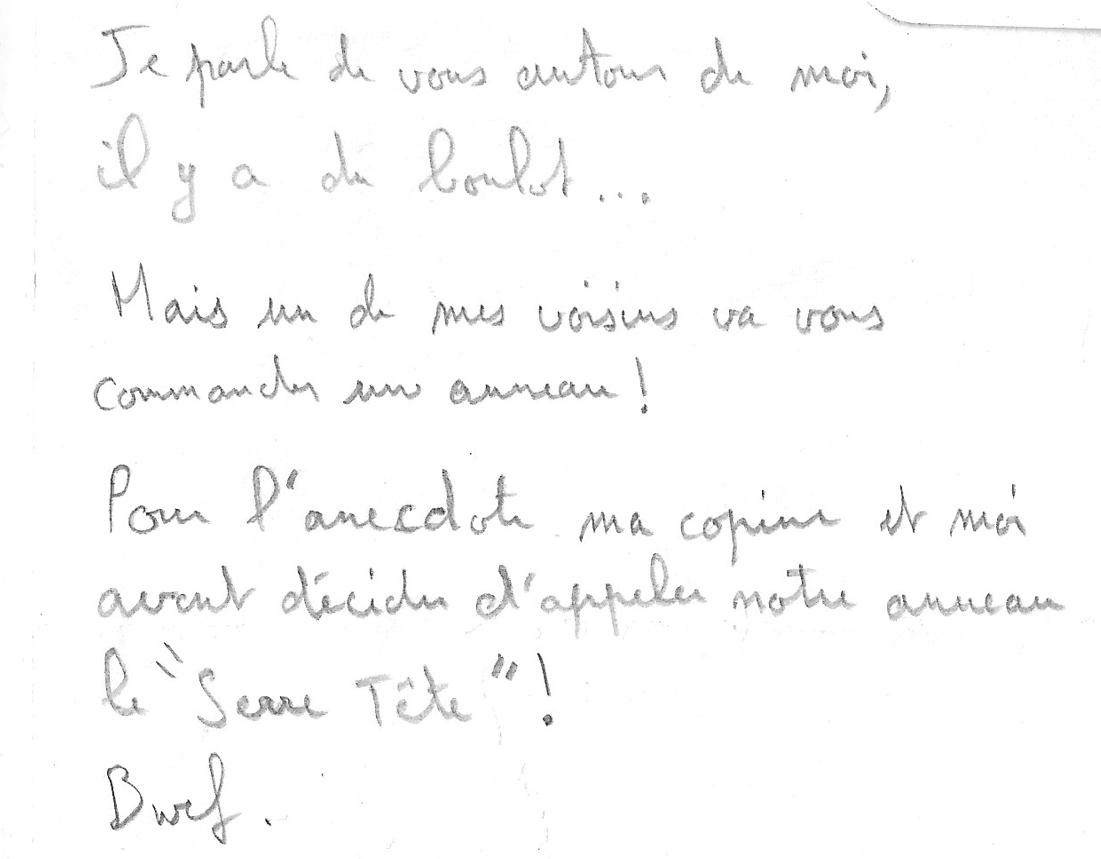 Je parle de vous autour de moi,
il y a du boulot...
Mais un de mes voisins va vous
commander un anneau !
Pour l'anecdote ma copine et moi
avont décider d'appeler notre anneau
le "Serre Tête" !
Bref.